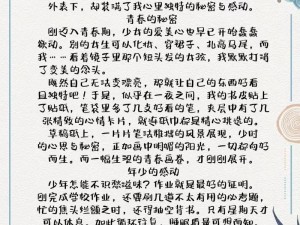 外表下，却装满了我心里独特的秘密与感动。
青春的秘密
刚迈入青春期，少女的爱美心也早已开始蠢蠢
欲动。别的女生可以化妆、穿裙子、扎高马尾，而
我……看着镜子里那个短头发的女孩，我默默打消
了变美的念头。
既然自己无法变漂亮，那就让自己的东西好看
且独特吧！于是，似乎在一夜之间，我的书皮贴上
了贴纸，笔袋里多了几支好看的笔，夹层中有了几
张精致的心情卡片，就连纸巾都是精心挑选的。
草稿纸上，一片片笔法稚嫩的风景展现，少时
的心思与秘密，正如画中明媚的阳光，一切都向好
而生。而一幅生理的青春画卷，才刚刚展开。
年少的感动
少年怎能不识愁滋味？作业就是最好的证明。
刚完成学校作业，还要刷几道不太有用的必考题，
忙的焦头烂额之时，还得抽空背书。只有是期天才
可以休息。如此循环往复，睡眠